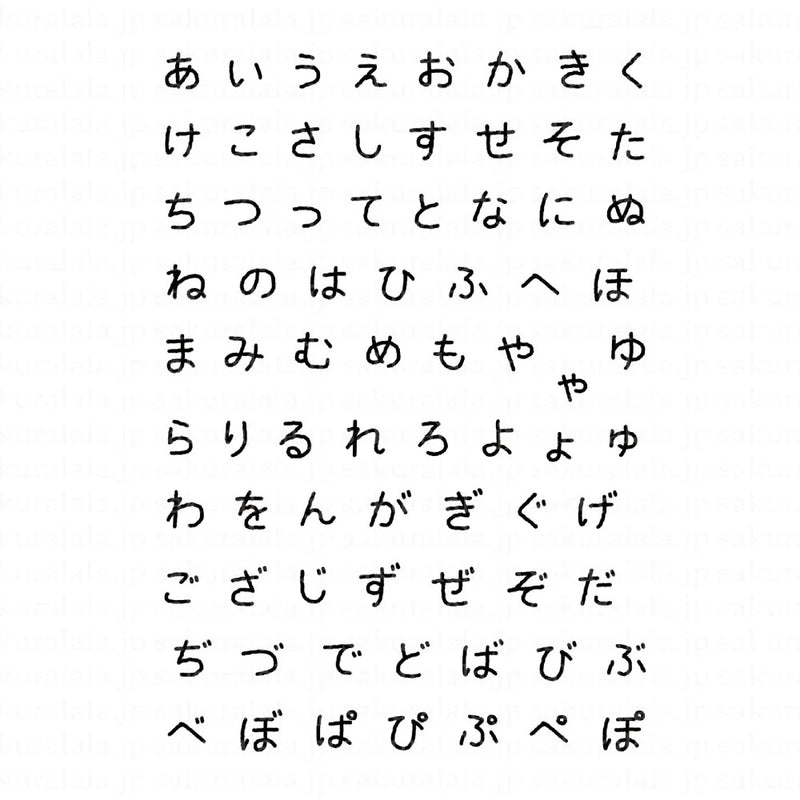 あ い う え お か き く
け こ さ し す せ そ た
ち つ っ て と な に ぬ
ね の は ひ ふ へ ほ
ま み む め も や ゃ ゆ
ら り る れ ろ よ ょ ゅ
わ を ん が ぎ ぐ げ
ご ざ じ ず ぜ ぞ だ
ぢ づ で ど ば び ぶ
べ ぼ ぱ ぴ ぷ ぺ ぽ
sakuralala.jp